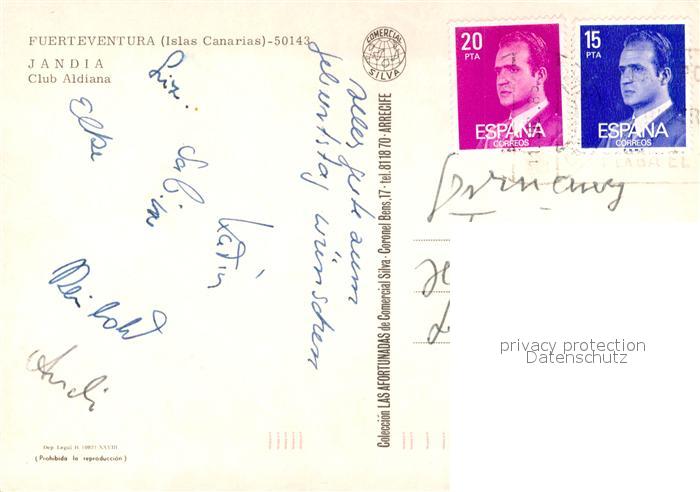 FUERTEVENTURA (Islas Canarias)-50143
JANDIA
Club Aldiana
COMERCIAL
SILVA
20
PTA
ESPAÑA
CORREOS
F.N.M.T.
15
PTA
ESPAÑA
CORREOS
F.N.M.T.
Alles gute zum
Geburtstag wünschen
Elke
Sabine
Katrin
Reinhold
Andi
Germany
Colección LAS AFORTUNADAS de Comercial Silva - Coronel Bens, 17 - tel. 81 18 70 - ARRECIFE
privacy protection
Datenschutz
(Prohibida la reproducción)